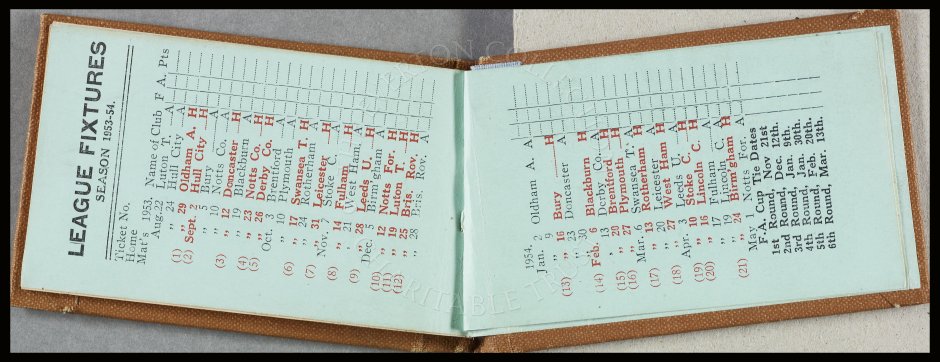 LEAGUE FIXTURES
SEASON 1953-54.
Ticket No.
Home
Mat's 1953. Name of Club F A. Pts
Aug.22 Luton T. A
,, 24 Hull City A
(1) ,, 29 Oldham A. H
(2) Sept. 2 Hull City H
,, 5 Bury A
,, 10 Notts Co. A
(3) ,, 12 Doncaster H
,, 19 Blackburn A
(4) ,, 23 Notts Co. H
(5) ,, 26 Derby Co. H
Oct. 3 Brentford A
,, 10 Plymouth A
(6) ,, 17 Swansea T. H
,, 24 Rotherham A
(7) ,, 31 Leicester H
Nov. 7 Stoke C. A
(8) ,, 14 Fulham H
,, 21 West Ham A
(9) ,, 28 Leeds U. H
Dec. 5 Birm'gham A
(10) ,, 12 Notts For. H
(11) ,, 19 Luton T. H
(12) ,, 25 Bris. Rov. H
,, 28 Bris. Rov. A
1954.
Jan. 2 Oldham A. A
,, 9
(13) ,, 16 Bury H
,, 23 Doncaster A
,, 30
(14) Feb. 6 Blackburn H
,, 13 Derby Co. A
(15) ,, 20 Brentford H
(16) ,, 27 Plymouth H
Mar. 6 Swansea T. A
(17) ,, 13 Rotherham H
,, 20 Leicester A
(18) ,, 27 West Ham H
Apr. 3 Leeds U. A
(19) ,, 10 Stoke C. H
(20) ,, 16 Lincoln C. H
,, 17 Fulham A
,, 19 Lincoln C. A
(21) ,, 24 Birm'gham H
May 1 Notts For. A
F.A. Cup Tie Dates
1st Round, Nov 21st
2nd Round, Dec. 12th.
3rd Round, Jan. 9th.
4th Round, Jan. 30th.
5th Round, Feb. 20th.
6th Round, Mar. 13th.